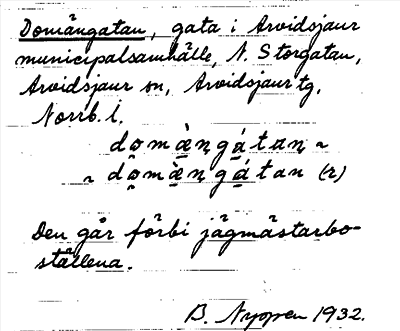 Domängatan, gata i Arvidsjaur
municipalsamhälle, N. Storgatan,
Arvidsjaur sn, Arvidsjaur tg,
Norrb. l.
do̤mæ̀ŋgátan ~
~ do̤mæ̀ŋgátan (r)
Den går förbi jägmästarbo-
ställena.
B. Nyppen 1932.